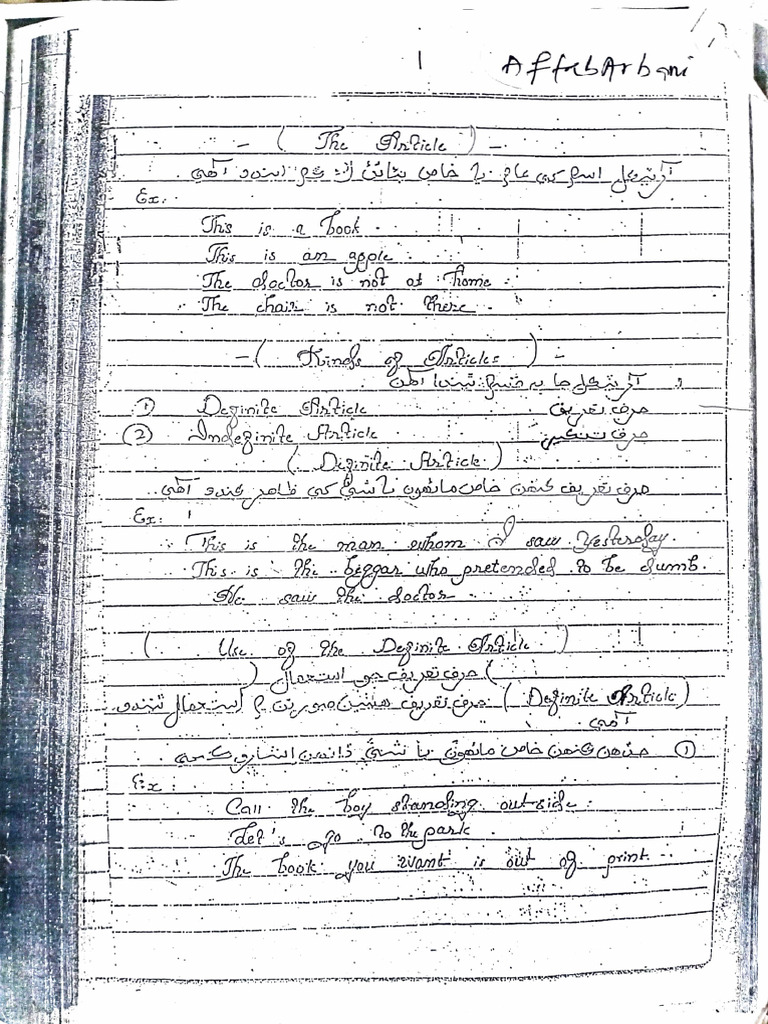 1
AftabArbani
-( The Article )-
آرٽيڪل اسم کي عام يا خاص بڻائڻ لاءِ ڪم ايندو آهي.
Ex:
This is a book.
This is an apple.
The doctor is not at home.
The chair is not there.
-( Kinds of Articles )-
آرٽيڪل جا به قسم ٿيندا آهن.
① Definite Article حرف تعريف
② Indefinite Article حرف تنڪير
( Definite Article )
حرف تعريف ڪنهن خاص ماڻهون يا شئي کي ظاهر ڪندو آهي.
Ex:
This is the man whom I saw Yesterday.
This is the beggar who pretended to be dumb.
We saw the doctor.
( Use of the Definite Article )
( حرف تعريف جو استعمال )
( Definite Article ) حرف تعريف هيٺين صورتن ۾ استعمال ٿيندو
آهي
① جڏهن ڪنهن خاص ماڻهون يا شئي ڏانهن اشارو ڪجي
Ex:
Call the boy standing outside.
Let's go to the park.
The book you want is out of print.